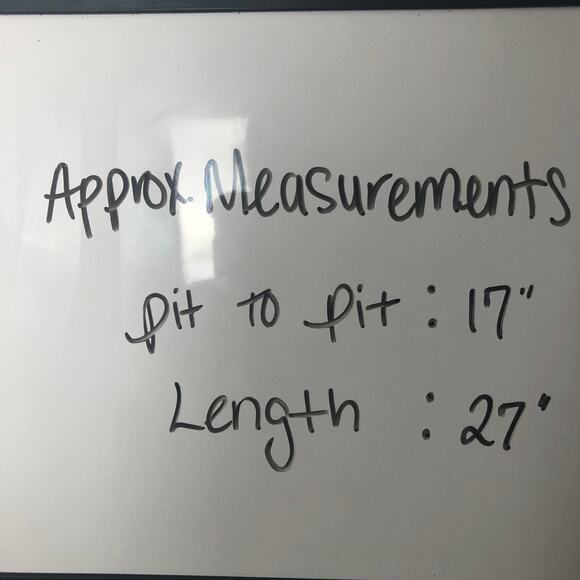 Approx. Measurements
pit to pit : 17"
Length : 27"